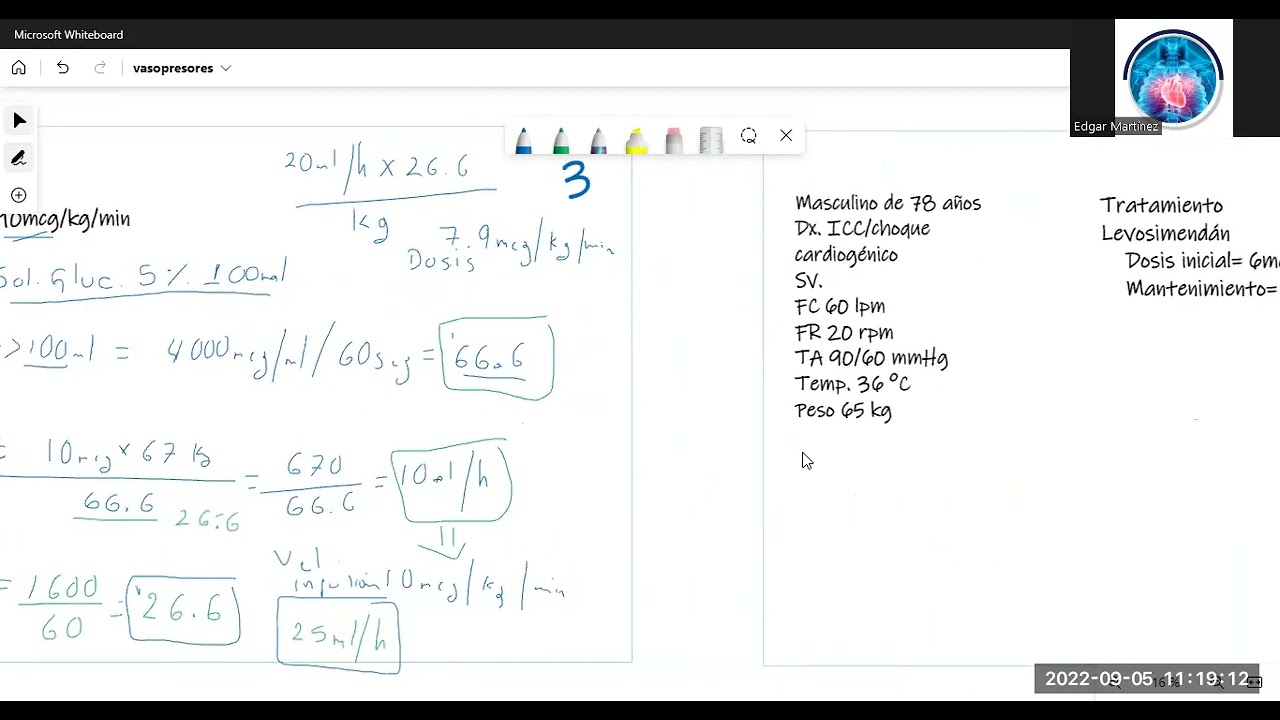 Microsoft Whiteboard
vasopresores
Edgar Martínez
20ml/h x 26.6
kg
3
10mcg/kg/min
7.9mcg/kg/min
Dosis
Sol. Gluc. 5% 100ml
>100ml = 4000mcg/ml/60seg = 66.6
= 10mcg x 67 kg
66.6
26.6
= 670
66.6
= 10ml/h
Vel
infusión 10mcg/kg/min
= 1600
60
= 26.6
25ml/h
Masculino de 78 años
Dx. ICC/choque
cardiogénico
SV.
FC 60 lpm
FR 20 rpm
TA 90/60 mmHg
Temp. 36 °C
Peso 65 kg
Tratamiento
Levosimendán
Dosis inicial= 6m
Mantenimiento=
2022-09-05 11:19:12